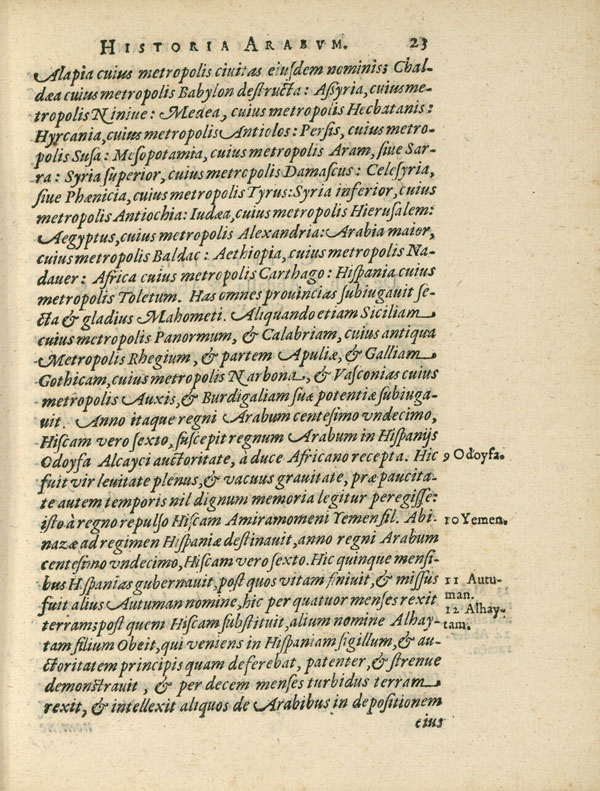 HISTORIA ARABVM. 23
Alapia cuius metropolis ciuitas eiusdem nominis; Chal-
dæa cuius metropolis Babylon destructa: Assyria, cuius me-
tropolis Niniue: Medea, cuius metropolis Hecbatanis:
Hyrcania, cuius metropolis Antiolos: Persis, cuius metro-
polis Susa: Mesopotamia, cuius metropolis Aram, siue Sar-
ra: Syria superior, cuius metropolis Damascus: Celesyria,
siue Phœnicia, cuius metropolis Tyrus: Syria inferior, cuius
metropolis Antiochia: Iudæa, cuius metropolis Hierusalem:
Aegyptus, cuius metropolis Alexandria: Arabia maior,
cuius metropolis Baldac: Aethiopia, cuius metropolis Na-
dauer: Africa cuius metropolis Carthago: Hispania cuius
metropolis Toletum. Has omnes prouincias subiugauit se-
cta & gladius Mahometi. Aliquando etiam Siciliam
cuius metropolis Panormum, & Calabriam, cuius antiqua
Metropolis Rhegium, & partem Apuliæ, & Galliam
Gothicam, cuius metropolis Narbona, & Vasconias cuius
metropolis Auxis, & Burdigaliam suæ potentiæ subiuga-
uit. Anno itaque regni Arabum centesimo vndecimo,
Hiscam vero sexto, suscepit regnum Arabum in Hispanijs
Odoyfa Alcayci auctoritate, à duce Africano recepta. Hic
9 Odoyfa.
fuit vir leuitate plenus, & vacuus grauitate, præ paucita-
te autem temporis nil dignum memoria legitur peregisse:
isto à regno repulso Hiscam Amiramomeni Yemen fil. Abi-
10 Yemen.
nazæ ad regimen Hispaniæ destinauit, anno regni Arabum
centesimo vndecimo, Hiscam vero sexto. Hic quinque mensi-
bus Hispanias gubernauit, post quos vitam finiuit, & missus
11 Autu-
man.
fuit alius Autuman nomine, hic per quatuor menses rexit
terram; post quem Hiscam substituit, alium nomine Alhay-
12 Alhay-
tam.
tam filium Obeit, qui veniens in Hispaniam sigillum, & au-
ctoritatem principis quam deferebat, patenter, & strenue
demonstrauit, & per decem menses turbidus terram
rexit, & intellexit aliquos de Arabibus in depositionem
eius